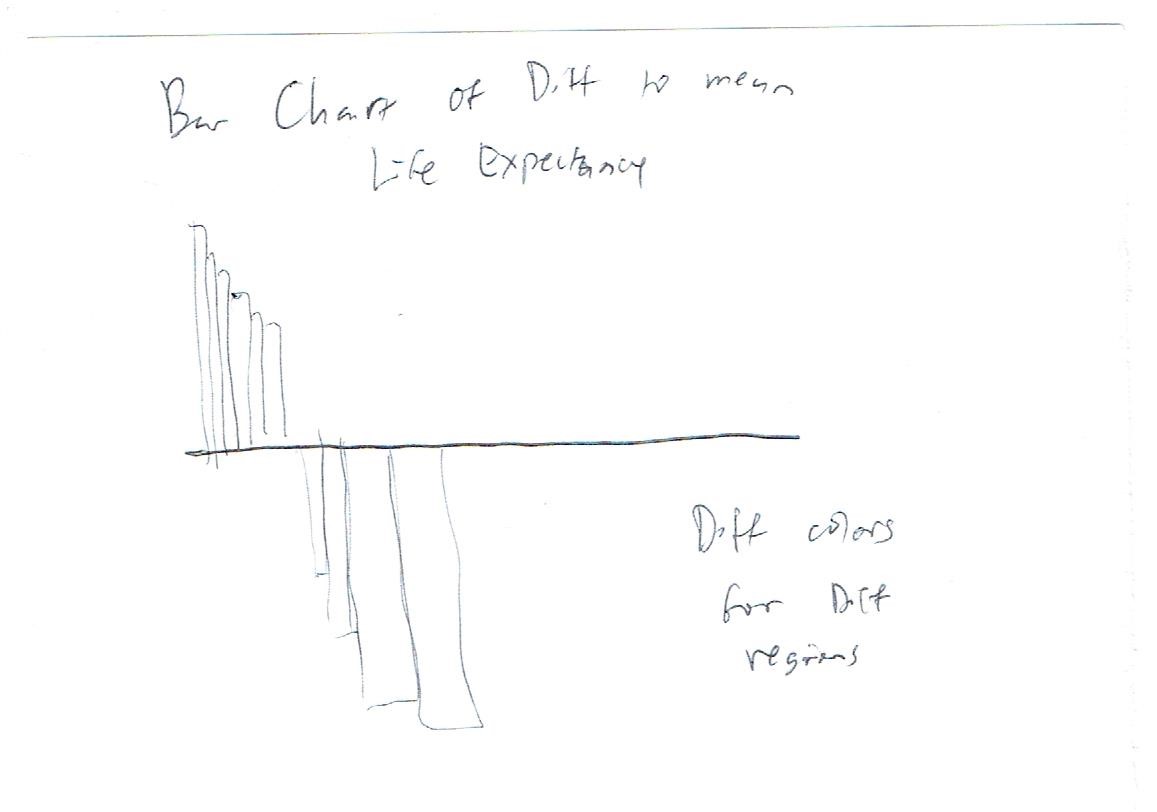 Bar Chart of Diff to mean
Life Expectancy
Diff colors
for Diff
regions